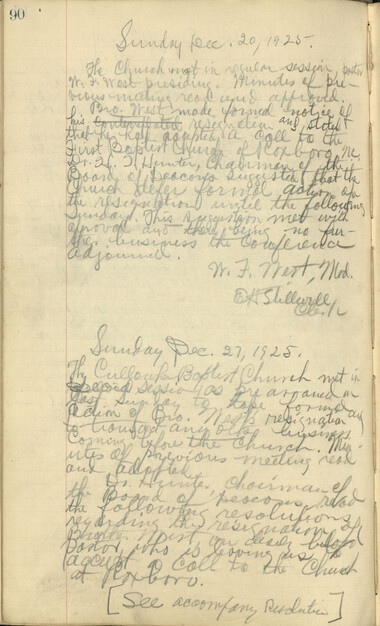 90
Sunday Dec. 20, 1925.
The Church met in regular session, pastor
W. F. West presiding. Minutes of pre-
vious meeting read and approved.
Bro. West made formal notice of
his resignation and stated
that he had accepted a call to the
First Baptist Church of Roxboro, N.C.
Dr. H. T. Hunter, Chairman of
Board of Deacons suggested that the
Church defer formal action on
the resignation until the following
Sunday. This suggestion met with
approval and there being no fur-
ther business the Conference
adjourned.
W. F. West, Mod.
E H Stillwell
Clerk
Sunday Dec. 27, 1925.
The Cullowhee Baptist Church met in
session as pre arranged on
last Sunday to take formal
action of Bro. West's resignation
to transact any other business
coming before the Church. Min-
utes of previous meeting read
and adopted.
Dr. Hunter, Chairman of
the Board of Deacons read
the following resolutions
regarding the resignation of
West, our dearly beloved
Pastor, who is leaving us to
accept a call to the Church
at Roxboro.
[See accompany Resolution]